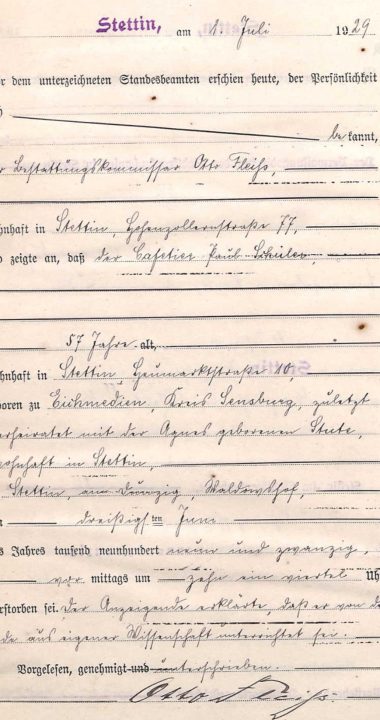 Stettin, am 1. Juli 1929
r dem unterzeichneten Standesbeamten erschien heute, der Persönlichkeit
bekannt,
r Bestattungskommissar Otto Fleiss,
hnhaft in Stettin, Hohenzollernstraße 77,
o zeigte an, daß der Cafetier Paul Schüler,
57 Jahre alt,
hnhaft in Stettin, Heumarktstraße 10,
oren zu Eichmedien, Kreis Sensburg, zuletzt
erheiratet mit der Agnes geborenen Stute,
wohnhaft in Stettin,
Stettin, am Dunzig,
n dreißigsten Juni
s Jahres tausend neunhundert neun und zwanzig,
vor mittags um zehn ein viertel Uh
rstorben sei. Der Anzeigende erklärte, daß er von de
de aus eigener Wissenschaft unterrichtet sei.
Vorgelesen, genehmigt und unterschrieben.
Otto Fleiss.